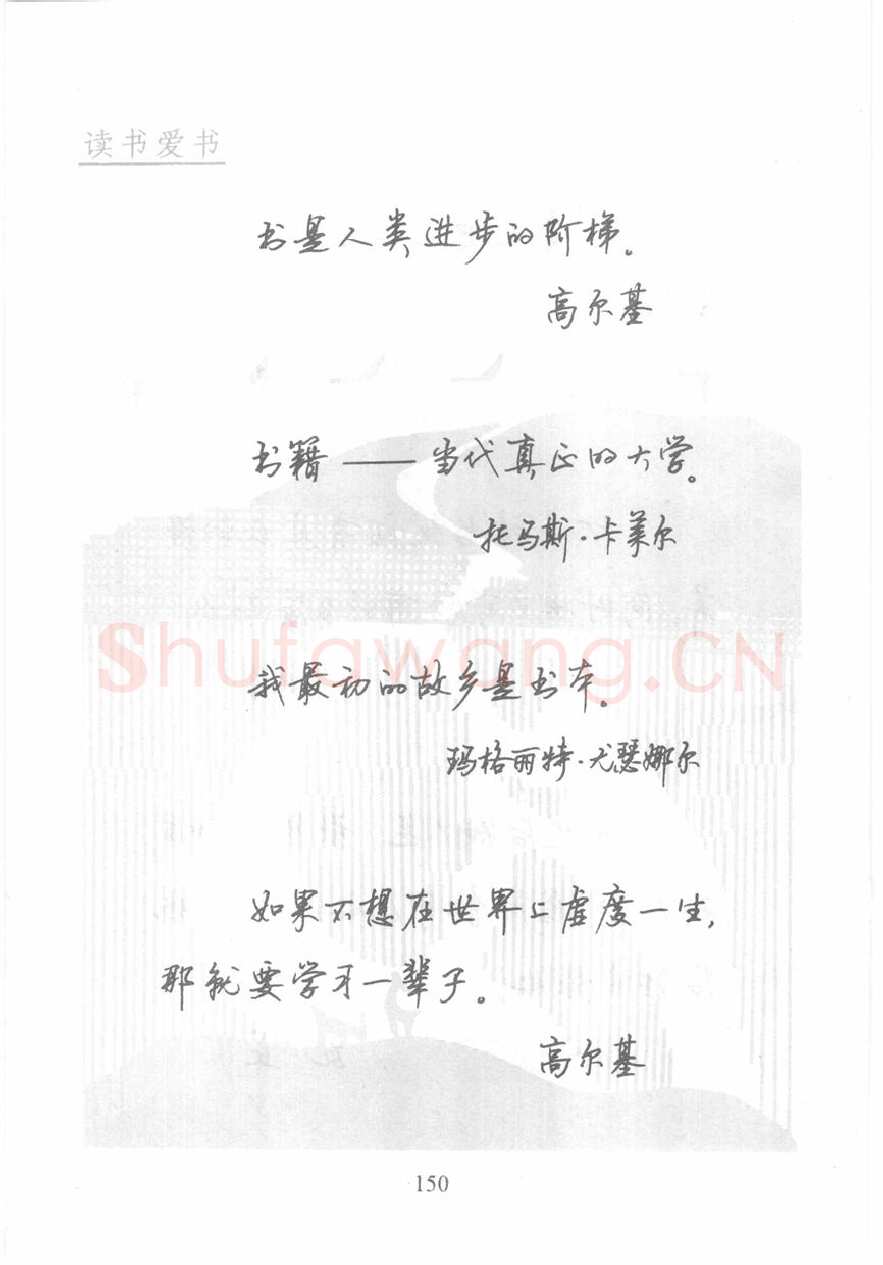 读书爱书
书是人类进步的阶梯。
高尔基
书籍——当代真正的大学。
托马斯·卡莱尔
Shufawang.CN
我最初的故乡是书本。
玛格丽特·尤瑟娜尔
如果不想在世界上虚度一生，
那就要学习一辈子。
高尔基
150